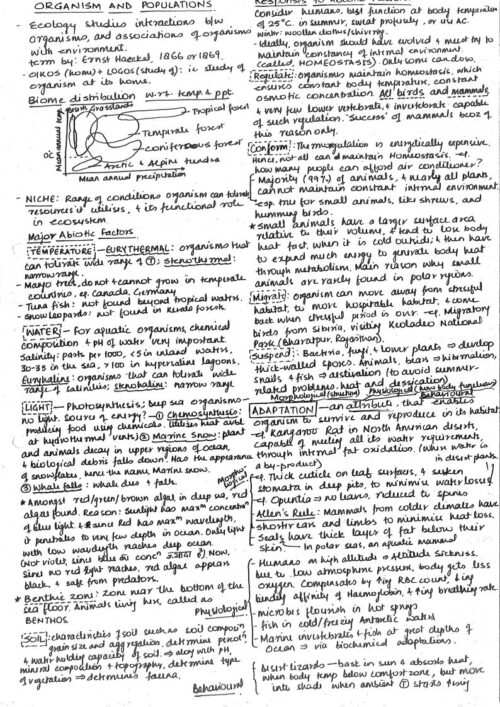 ORGANISM AND POPULATIONS
- Ecology studies interactions b/w
organisms, and associations of organisms
with environment.
term by: Ernst Haeckel, 1866 or 1869.
OIKOS (home) + LOGOS (study of): ie study of
organism at its home.
Biome distribution w.r.t. temp & ppt.
Grasslands
Tropical forest
Temperate forest
coniferous forest
Arctic & Alpine tundra
0°C
Mean annual temp
Mean annual precipitation
- NICHE: Range of conditions organism can tolerate,
resources it utilises, & its functional role
in ecosystem.
Major Abiotic Factors
TEMPERATURE - EURYTHERMAL: organisms that
can tolerate wide range of T; Stenothermal:
narrow range.
- Mango trees do not grow in temperate
countries, eg. Canada, Germany
- Tuna fish: not found beyond tropical waters.
- Snow leopards: not found in Kerala forests.
WATER - For aquatic organisms, chemical
composition & pH of water very important.
Salinity: parts per 1000, <5 in inland waters,
30-35 in the sea, >100 in hypersaline lagoons.
Euryhaline: organisms that can tolerate wide
range of salinities; stenohaline: narrow range
LIGHT - Photosynthesis; Deep sea organisms -
no light. Source of energy? - ① Chemosynthesis:
producing food using chemicals. Utilises heat avlbl
at hydrothermal vents. ② Marine Snow: plant
and animals decay in upper regions of ocean,
& biological debris falls down. Has the appearance
of snowflakes, hence the name, Marine snow.
③ Whale falls: whale dies & falls.
* Amongst red/green/brown algae in deep sea, red
algae found. Reason: Sunlight has maxm concentn
of blue light & since Red has maxm wavelength,
it penetrates to very few depth in ocean. Only light
with low wavelength reaches deep ocean.
(Not violet, since blue ki concn) Now,
since no red light reaches, red algae appears
black, & safe from predators.
* Benthic zone: zone near the bottom of the
sea floor. Animals living here, called as
BENTHOS.
SOIL: characteristics of soil such as soil composn,
grain size and aggregation, determine percoln
& water holding capacity of soil. → along with pH,
mineral composition & topography, determine type
of vegetation → determines fauna.
Responses to Abiotic
Consider humans, best function at body temperature
of 25°C. in summer, sweat profusely, or use AC.
winter: woollen clothes/shivering.
- Ideally, organism should have evolved & must try to
maintain constancy of internal environment.
(called, HOMEOSTASIS). Only some can do so.
Regulate: organisms maintain homeostasis, which
ensures constant body temperature, constant
osmotic concentration. All birds and mammals
& very few lower vertebrate, & invertebrate capable
of such regulation. 'Success' of mammals bcoz of
this reason only.
Conform: Thermoregulation is energetically expensive,
Hence, not all can maintain Homeostasis. eg.
how many people can afford air conditioner?
- Majority (99%) of animals, & nearly all plants,
cannot maintain constant internal environment.
esp. true for small animals, like shrews, and
humming birds.
* Small animals have a larger surface area
relative to their volume, & tend to lose body
heat fast, when it is cold outside; & then have
to expend much energy to generate body heat
through metabolism. Main reason why small
animals are rarely found in polar regions.
Migrate: organism can move away from stressful
habitat, to more hospitable habitat, & come
back when stressful period is over. eg. Migratory
birds from Siberia, visiting Keoladeo National
Park (Bharatpur, Rajasthan).
Suspend: Bacteria, fungi, & lower plants → develop
thick-walled spores. Animals, bears → hibernation,
snails & fish → aestivation (to avoid summer-
related problems, heat and dessication)
Morphological (structure) Physiological (have body functions)
Behavioural
ADAPTATION - an attribute that enables
organism to survive and reproduce in its habitat
eg. Kangaroo Rat in North American deserts,
capable of meeting all its water requirements,
through internal fat oxidation. (where water is
a by-product) in desert plants.
Morphological
- eg. Thick cuticle on leaf surfaces, & sunken
stomata in deep pits, to minimise water loss.
eg. Opuntia → no leaves, reduced to spines
- Allen's Rule: Mammals from colder climates have
shorter ears and limbs to minimise heat loss.
- Seals have thick layer of fat below their
skin. - in polar seas, an aquatic mammal
Physiological
- Humans in high altitude → Altitude Sickness.
Due to low atmospheric pressure, body gets less
oxygen. Compensates by ↑ing RBC count, ↓ing
binding affinity of Haemoglobin, & ↑ing breathing rate.
- microbes flourish in hot springs
- fish in cold/freezing Antarctic waters
- Marine invertebrates & fish at great depths of
Ocean → via biochemical adaptations.
Behavioural
Desert lizards - bask in sun & absorb heat,
when body temp below comfort zone, but move
into shade when ambient T starts rising